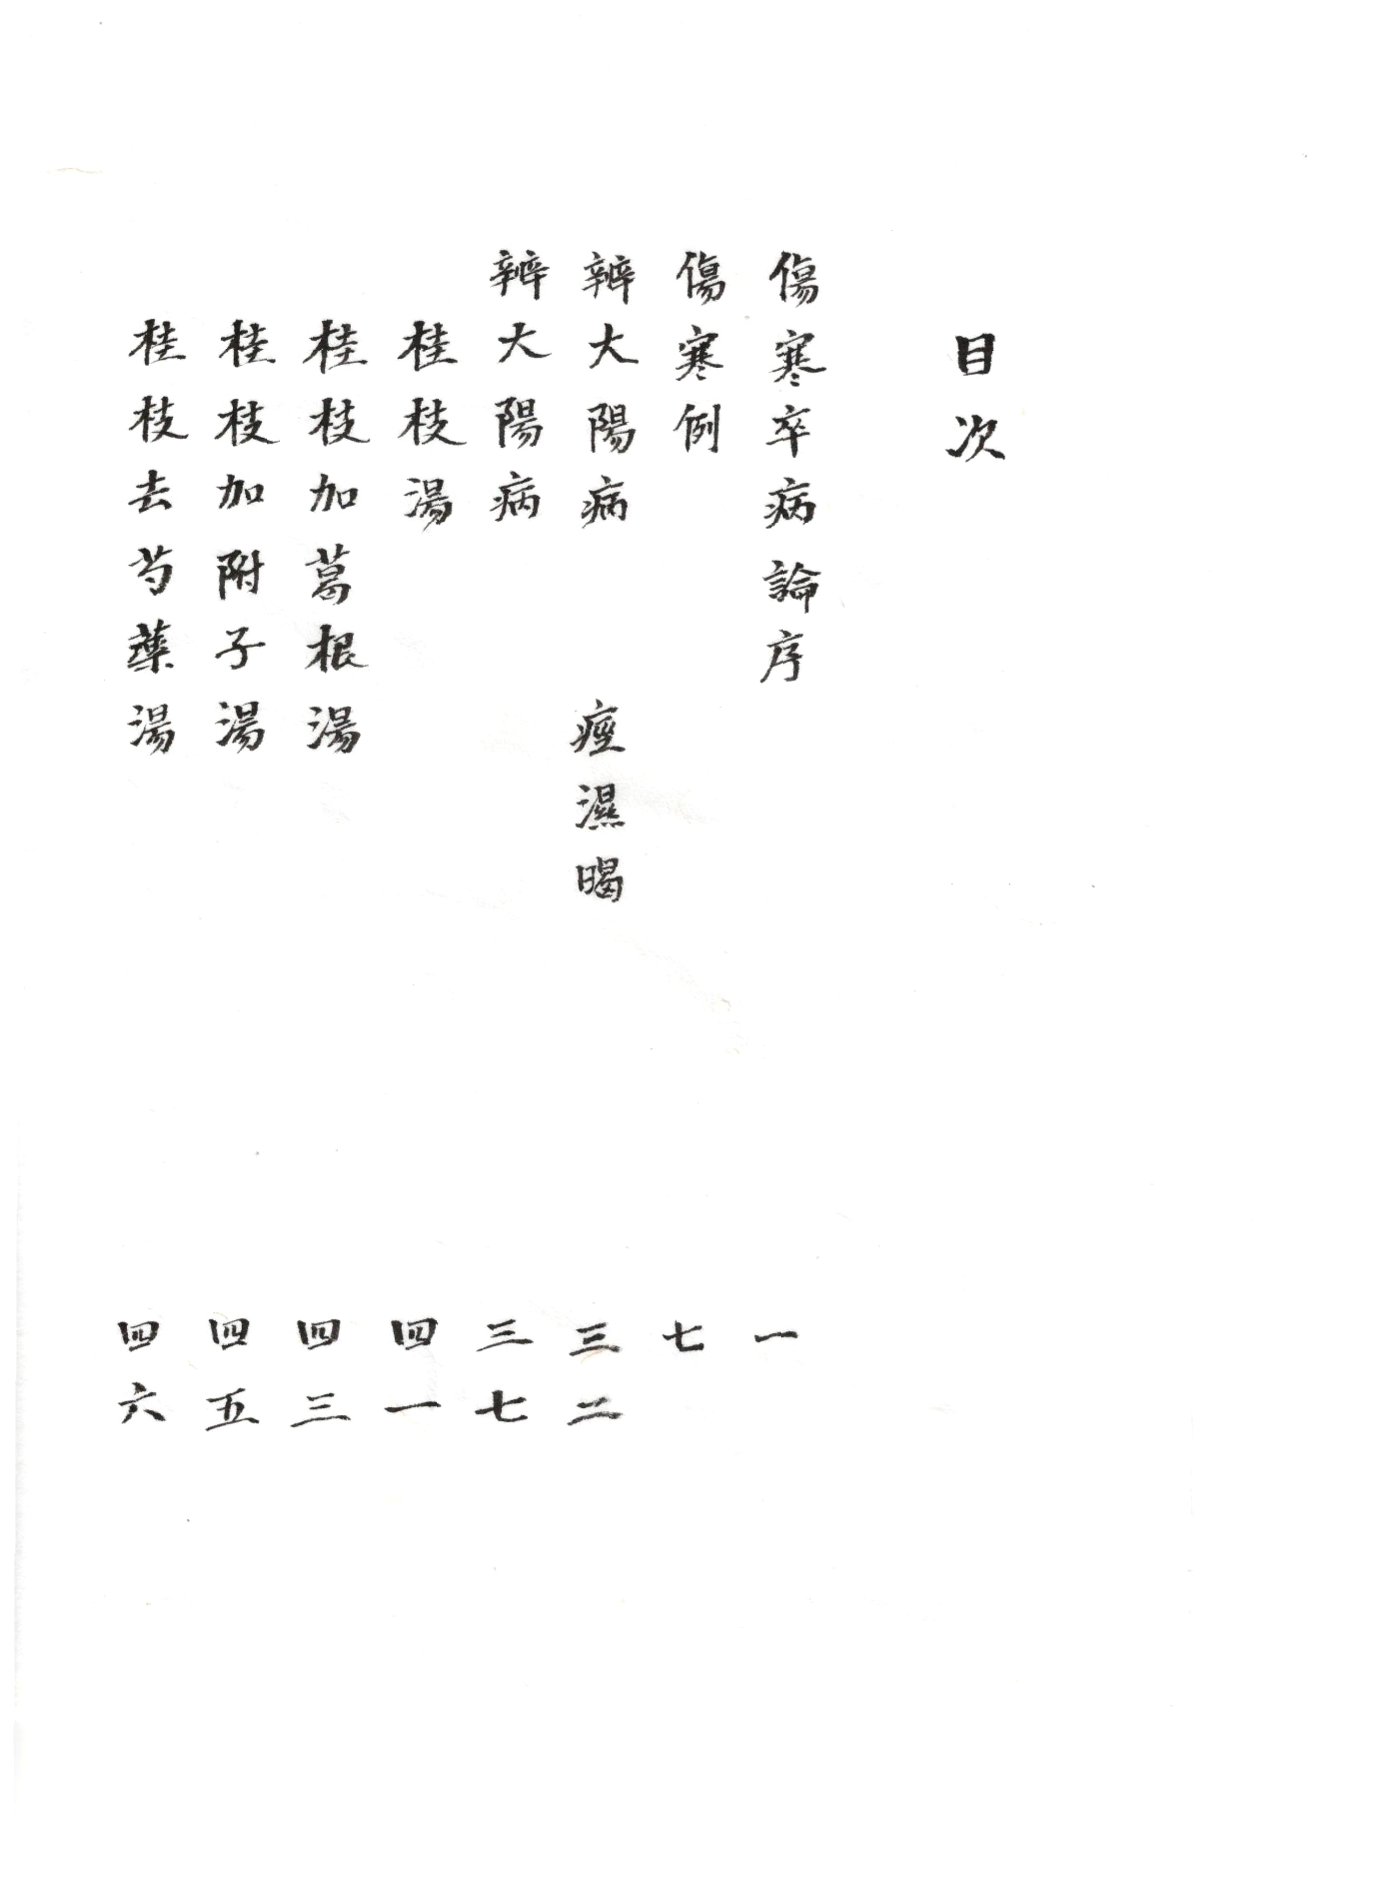 目次
傷寒卒病論序 一
傷寒例 七
辨大陽病 痙濕暍 三二
辨大陽病 三七
桂枝湯 四一
桂枝加葛根湯 四三
桂枝加附子湯 四五
桂枝去芍藥湯 四六